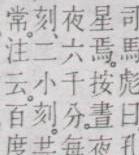 司馬彪曰
星焉。按晝夜
夜六千分。每
刻。二小刻。
常。注云。百度